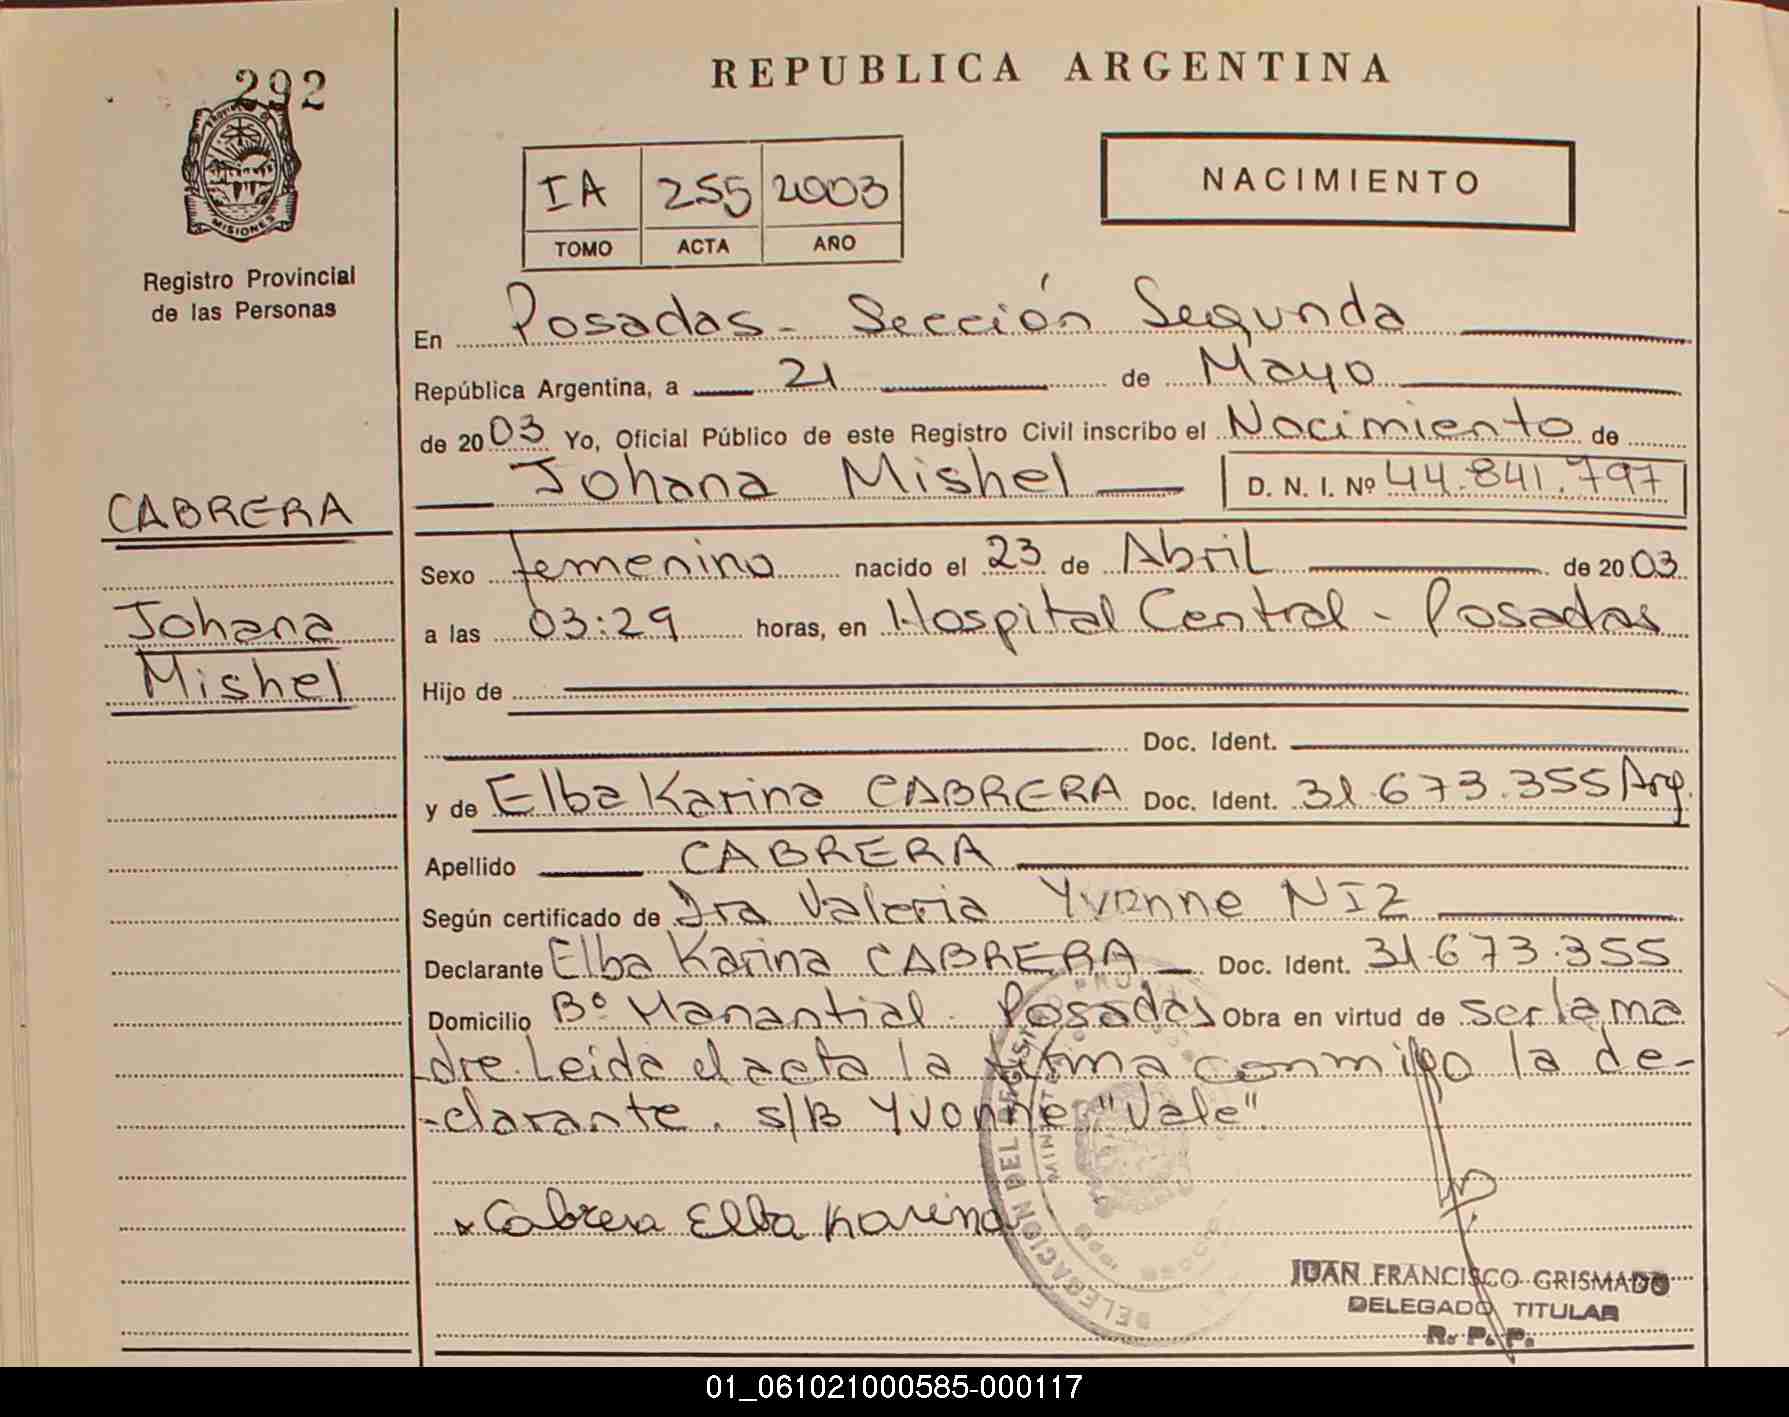 292
PROVINCIA D
MISIONES
Registro Provincial
de las Personas
CABRERA
Johana
Mishel
REPUBLICA ARGENTINA
IA 255 2003
TOMO ACTA AÑO
NACIMIENTO
En Posadas - Sección Segunda
República Argentina, a 21 de Mayo
de 2003 Yo, Oficial Público de este Registro Civil inscribo el Nacimiento de
Johana Mishel D. N. I. Nº 44.841.797
Sexo femenino nacido el 23 de Abril de 2003
a las 03:29 horas, en Hospital Central - Posadas
Hijo de
Doc. Ident.
y de Elba Karina CABRERA Doc. Ident. 31.673.355 Arg.
Apellido CABRERA
Según certificado de Dra Valeria Yvonne NIZ
Declarante Elba Karina CABRERA Doc. Ident. 31.673.355
Domicilio Bº Manantial - Posadas Obra en virtud de ser la ma
dre. Leída el acta la firma conmigo la de-
-clarante. s/B Yvonne "Vale"
x Cabrera Elba Karina
DELEGACION DEL REGISTRO
JUAN FRANCISCO GRISMADO
DELEGADO TITULAR
R. P. P.
01_061021000585-000117